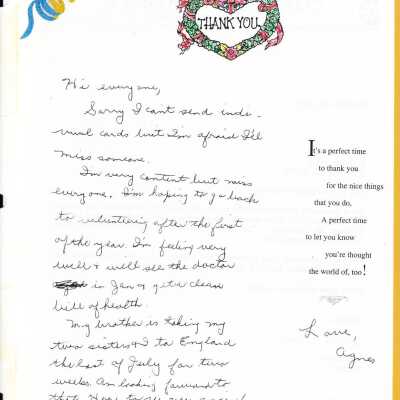 THANK YOU
Hi everyone,
Sorry I can't send inde-
vidual cards but I'm afraid I'll
miss someone.
I'm very content but miss
everyone. I'm hoping to go back
to volunteering after the first
of the year. I'm feeling very
well & will see the doctor
in Jan & get a clean
bill of health.
My brother is taking my
two sisters & I to England
the last of July for two
weeks. Am looking forward to
that. Hope to see
It's a perfect time
to thank you
for the nice things
that you do,
A perfect time
to let you know
you're thought
the world of, too!
Love,
Agnes